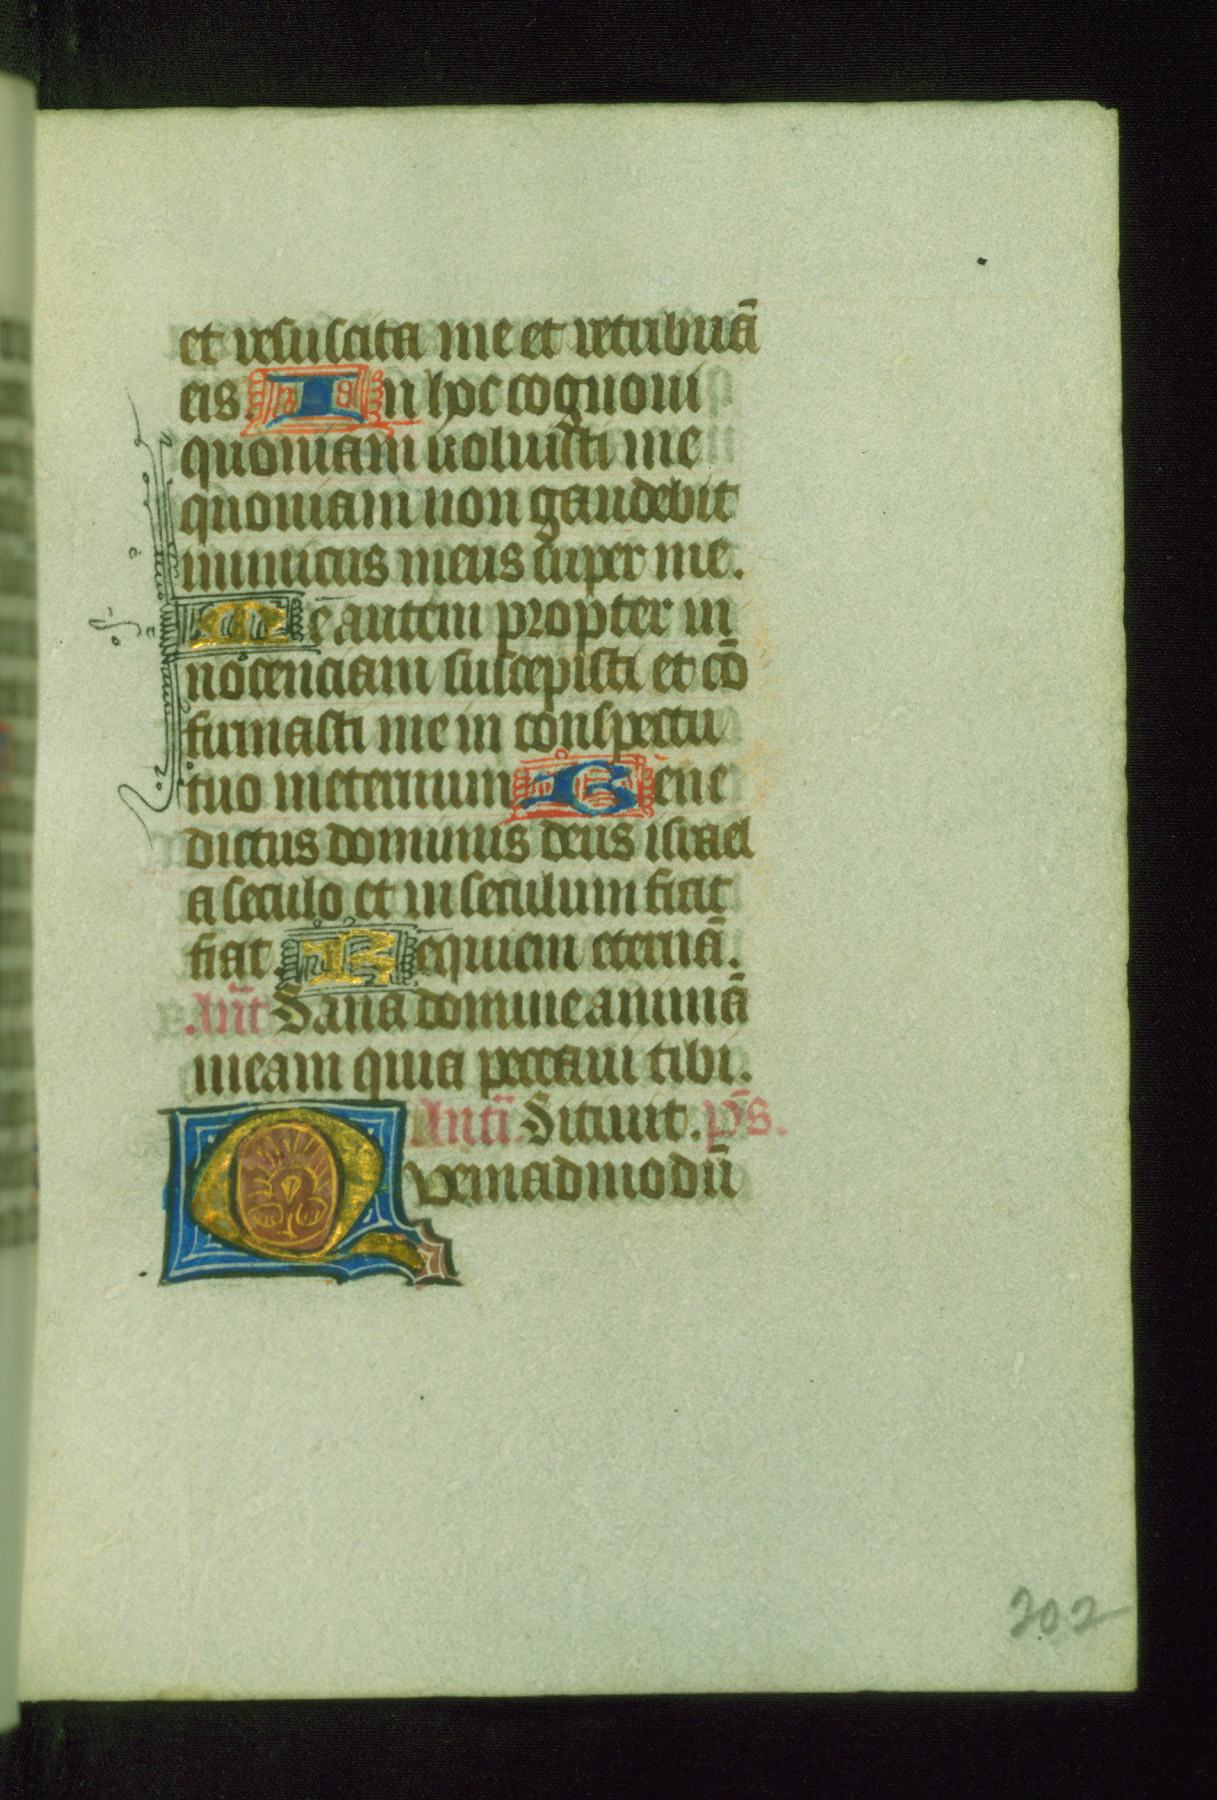 et resuscita me et retribuā
eis. In hoc cognoui
quoniam uoluisti me
quoniam non gaudebit
inimicus meus super me.
Me autem propter in
nocenciam suscepisti et cō
firmasti me in conspectu
tuo ineternum Bene
dictus dominus deus israel
a seculo et in seculum fiat
fiat. Requiem eternā.
Ant̄ Sana domine animā
meam quia peccaui tibi.
Antī. Sitiuit. ps̄.
Quemadmodū
202